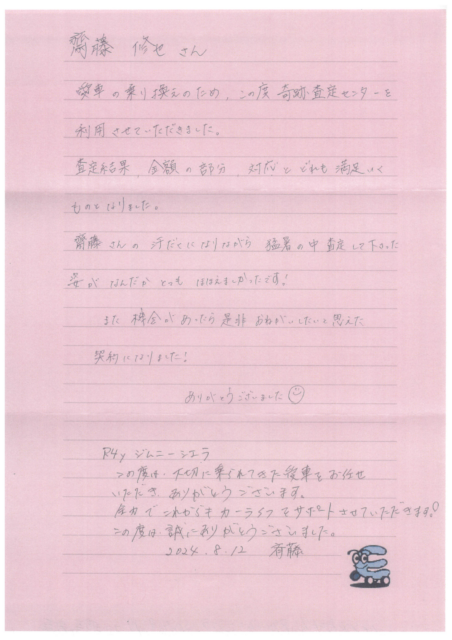 齋藤 修也 さん
愛車の乗り換えのため、この度 奇跡査定センターを
利用させていただきました。
査定結果、金額の部分、対応と どれも満足いく
ものとなりました。
齋藤さんの汗だくになりながら 猛暑の中査定して下さった
姿が なんだか とっても ほほえましかったです!
また 機会があったら是非 おねがいしたいと思えた
契約になりました!
ありがとうございました
R4y ジムニーシエラ
この度は、大切に乗られてきた愛車をお任せ
いただき ありがとうございます。
全力で これからも カーライフをサポートさせていただきます!
この度は誠にありがとうございました。
2024.8.12 斉藤